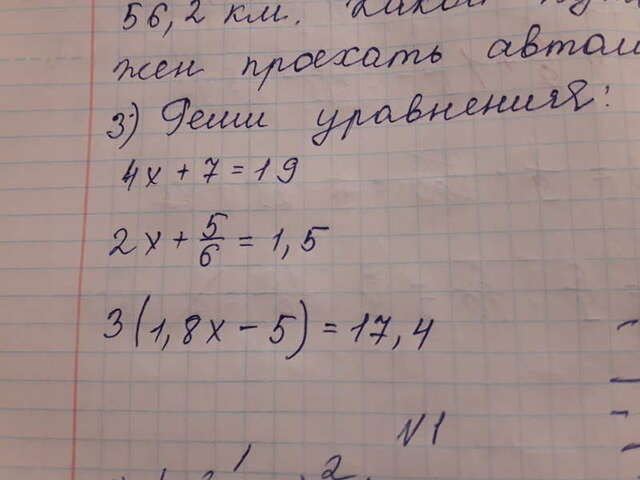 56,2 км.
жен проехать автом
3) Реши уравнения:
4x + 7 = 19
2x + 5/6 = 1,5
3(1,8x - 5) = 17,4
N1